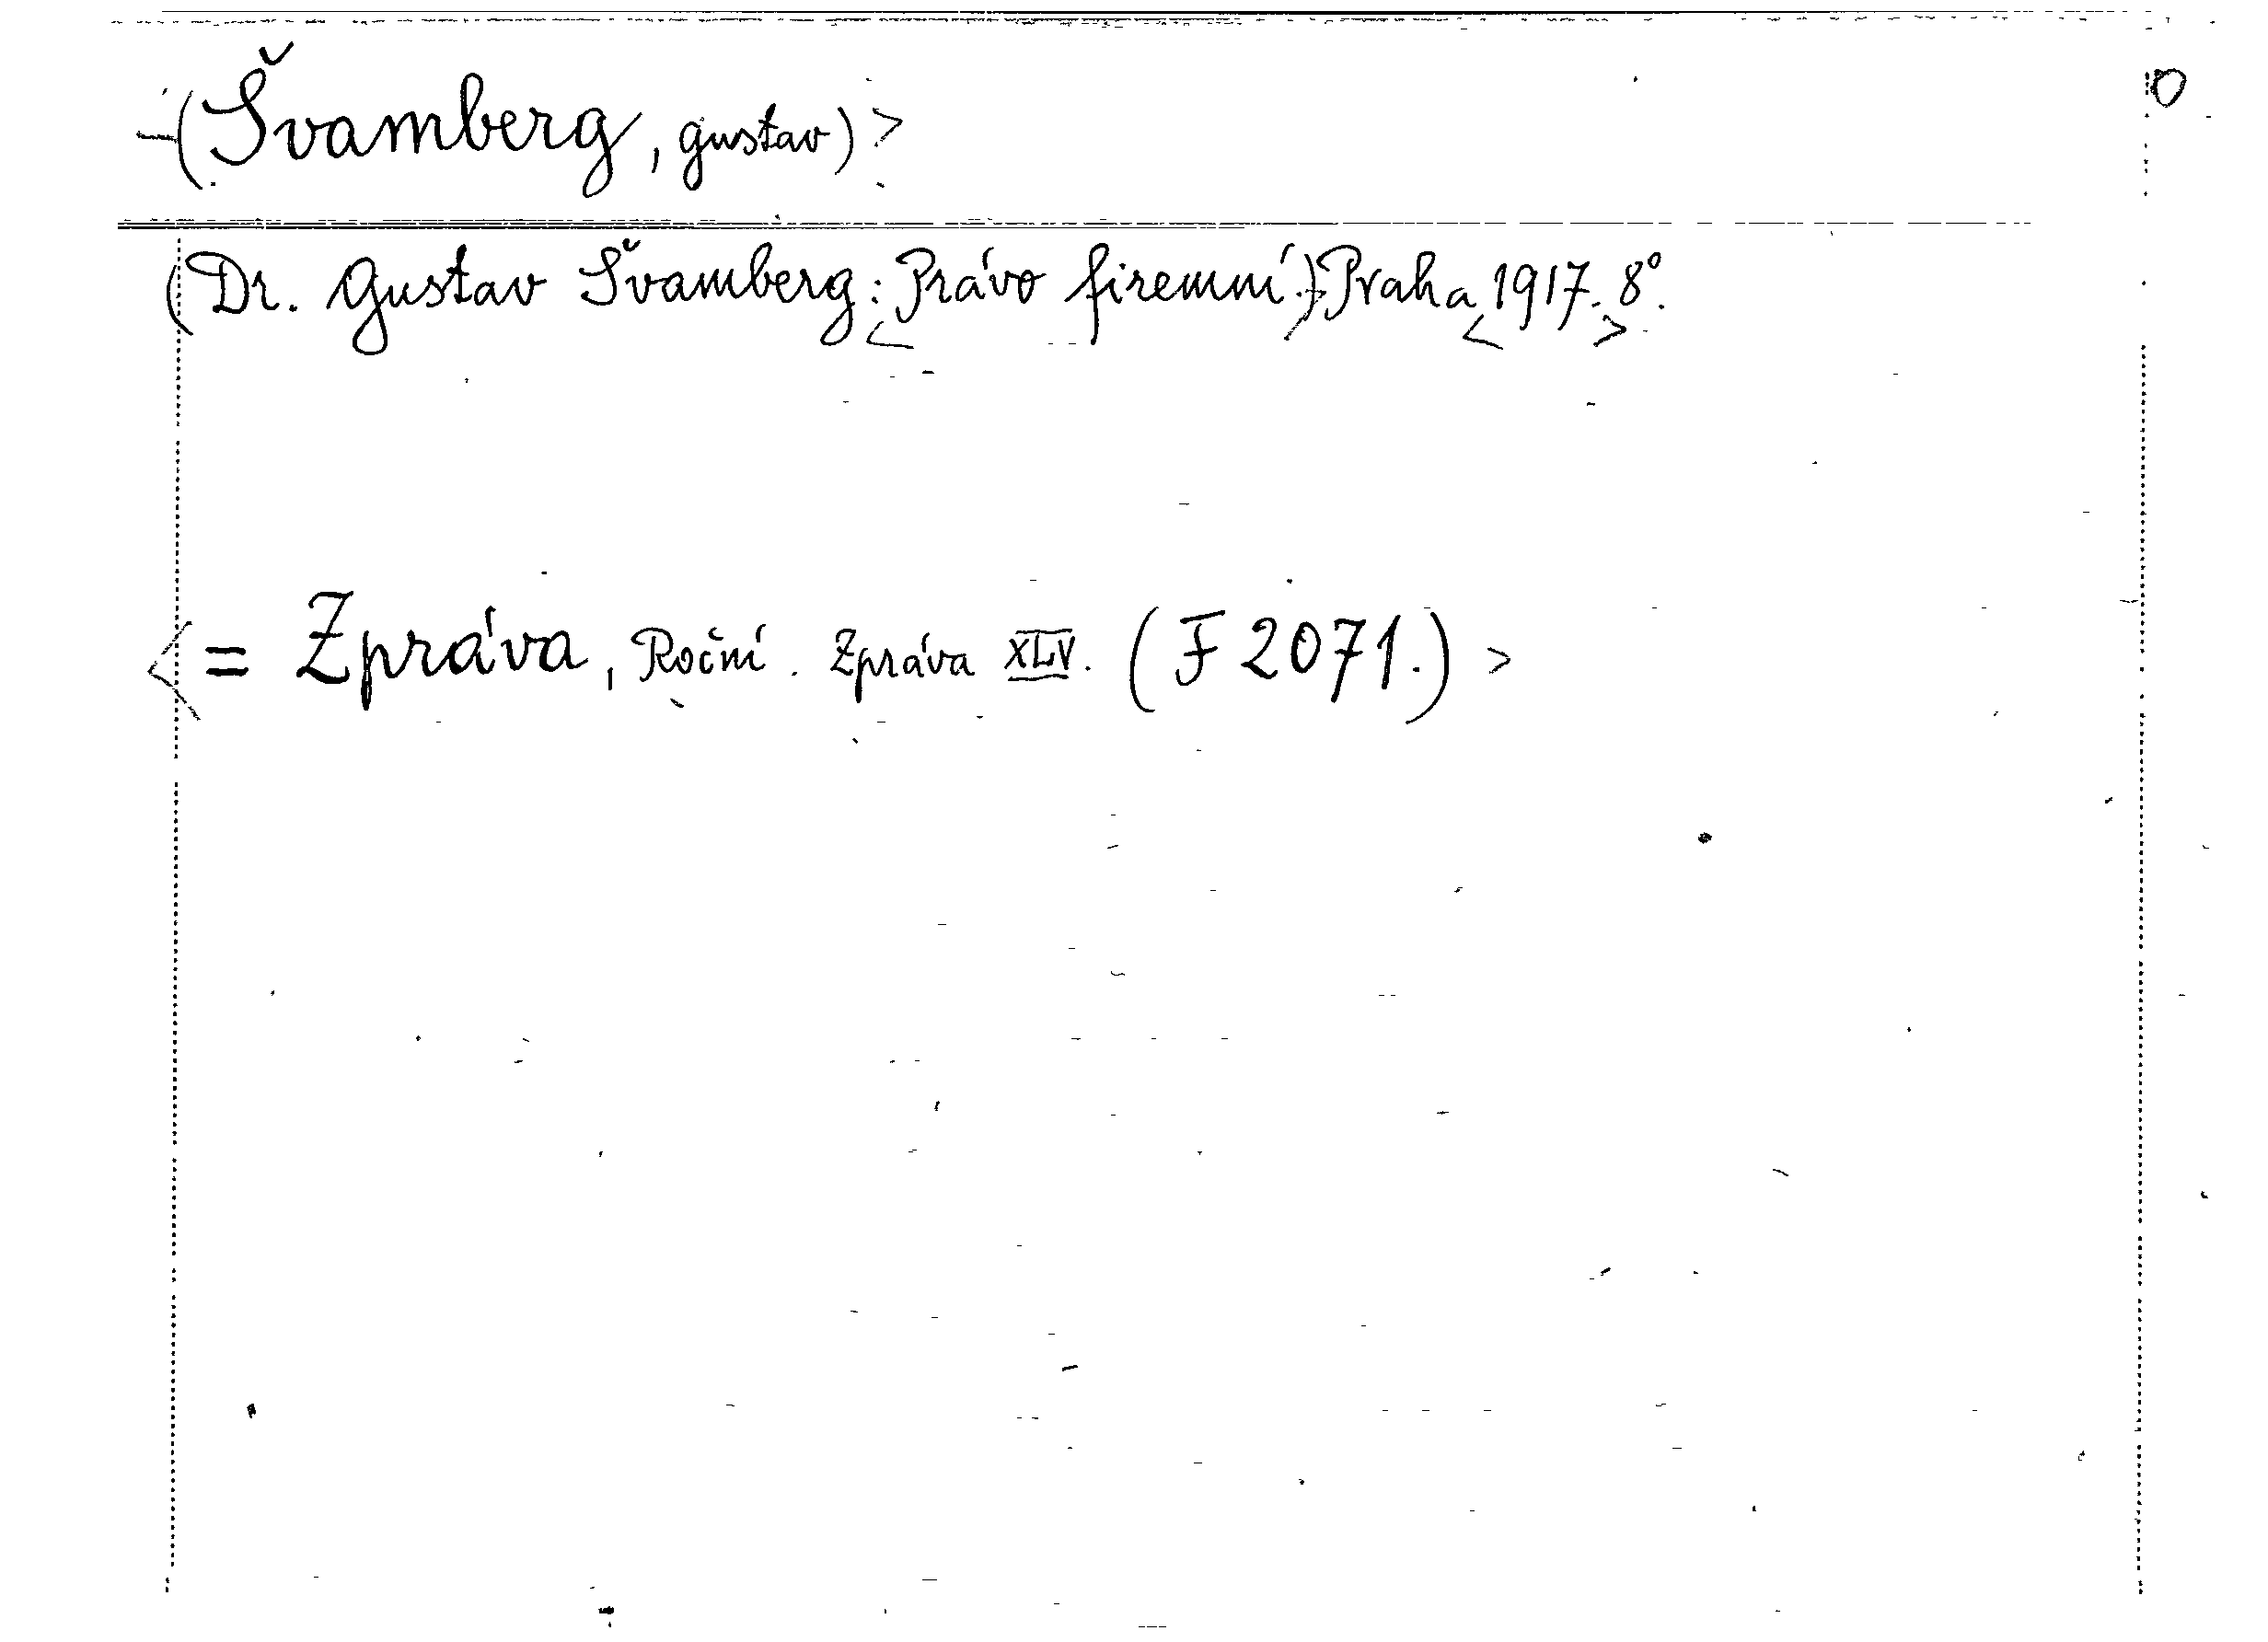 (Švamberg, Gustav)>
O
(Dr. Gustav Švamberg: <Právo firemní.)> Praha <1917.> 8°.
<= Zpráva, Roční. Zpráva XLV. (F 2071.) >